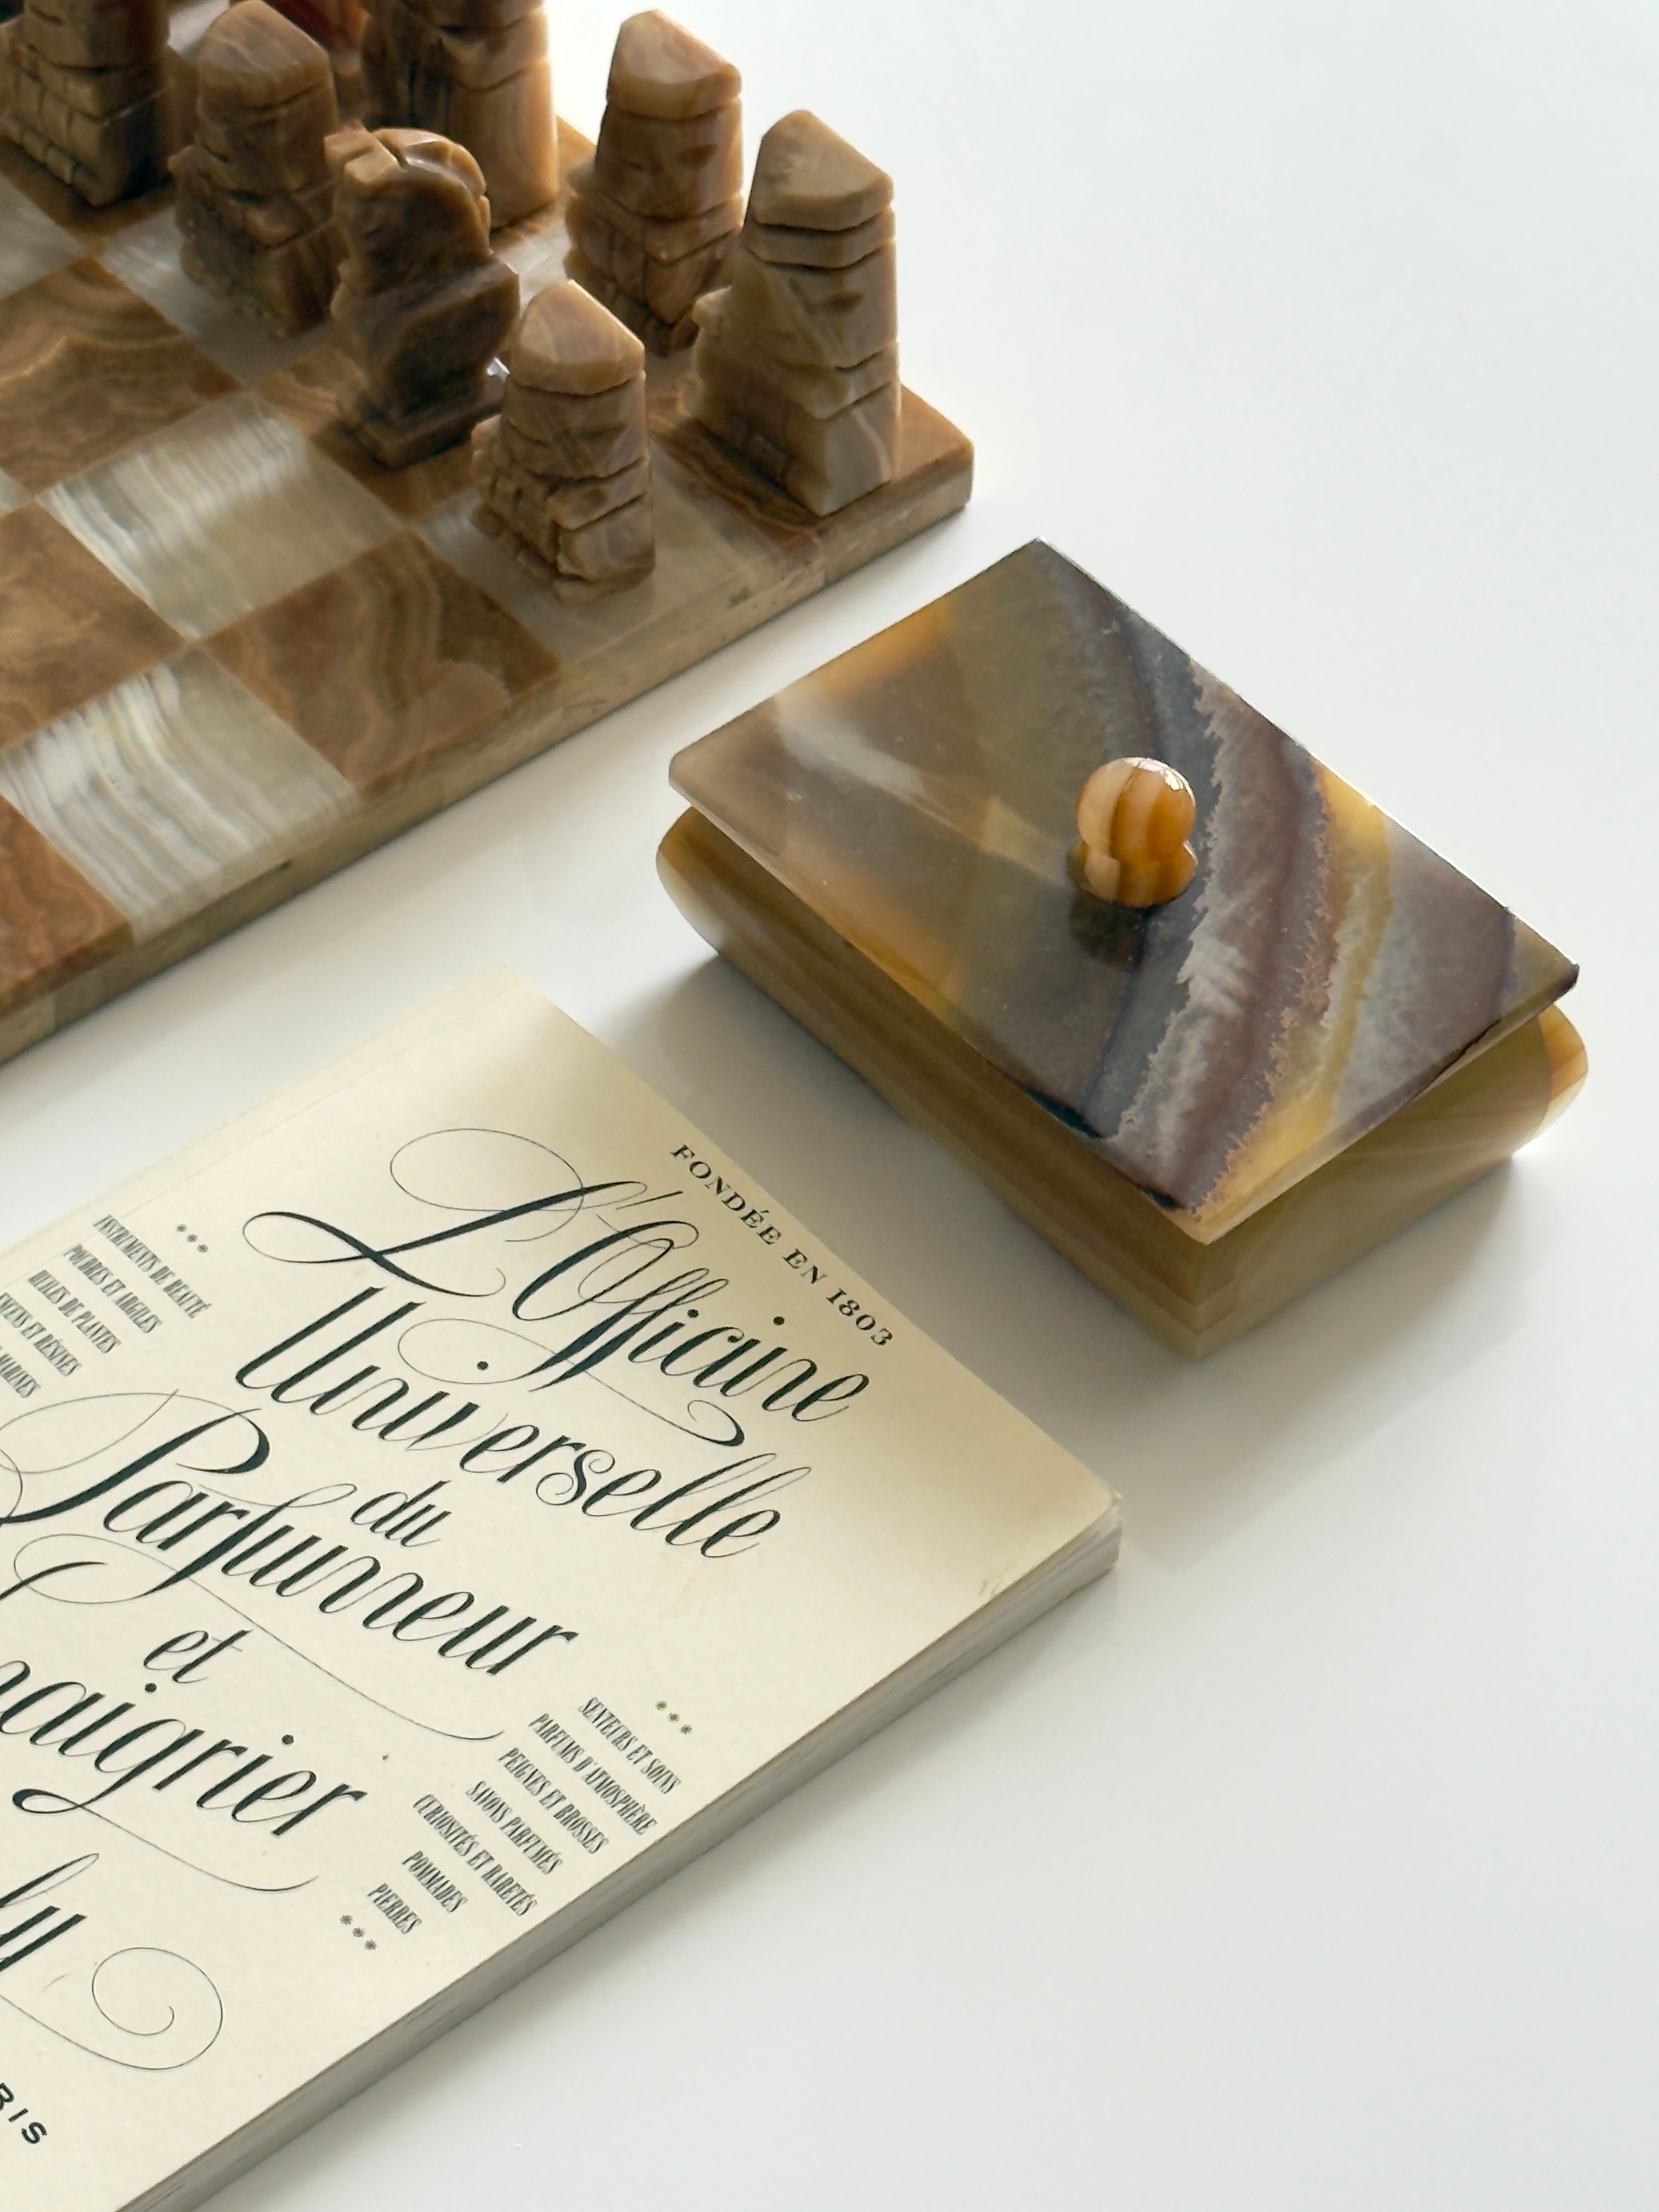 FONDÉE EN 1803
L'Officine
Universelle
du
Parfumeur
et
naigrier
ly
RIS
INSTRUMENTS DE BEAUTÉ
POUDRES ET ARGILES
HUILES DE PLANTES
ET RÉSINES
MARINES
SENTEURS ET SOINS
PARFUMS D'ATMOSPHÈRE
PEIGNES ET BROSSES
SAVONS PARFUMÉS
CURIOSITÉS ET RARETÉS
POMMADES
PIERRES